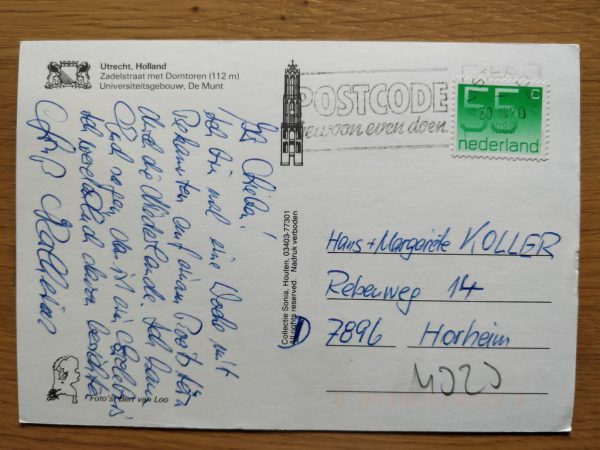 Utrecht, Holland
Zadelstraat met Domtoren (112 m)
Universiteitsgebouw, De Munt
POSTCODE
gewoon even doen.
30 III 90
55 c
nederland
Ihr Lieben!
Ich bin mal eine Woche mit
Bekannten auf einem Boot
durch die Niederlande. Ich kann
Euch sagen, das ist ein Erlebnis
Ich werd Euch davon berichten
Gruß
Collectie Sonia, Houten, 03403-77301
All rights reserved. Nadruk verboden
Hans + Margarete KOLLER
Rebenweg 14
7896 Horheim
4020
Foto's: Bert van Loo